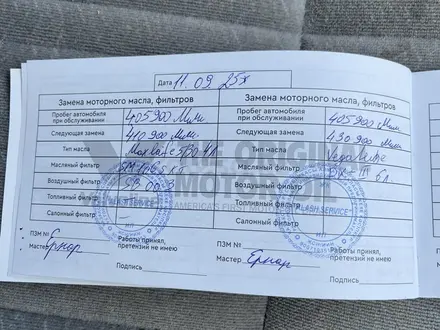 Дата 11. 09. 25г
Замена моторного масла, фильтров
Пробег автомобиля при обслуживании 405900 Мили.
Следующая замена 410900 Мили.
Тип масла 5/30 4л
Масляный фильтр
Воздушный фильтр
Топливный фильтр
Салонный фильтр
ПЗМ №
Мастер Ернар
Работы принял, претензий не имею
Подпись
Замена моторного масла, фильтров
Пробег автомобиля при обслуживании 405900 Мили.
Следующая замена 430900 Мили.
Тип масла
Масляный фильтр
Воздушный фильтр
Топливный фильтр
Салонный фильтр
ПЗМ №
Мастер Ернар
Работы принял, претензий не имею
Подпись
TRUE ORIGINAL
MOTOR OIL
AMERICA'S FIRST
FLASH SERVICE